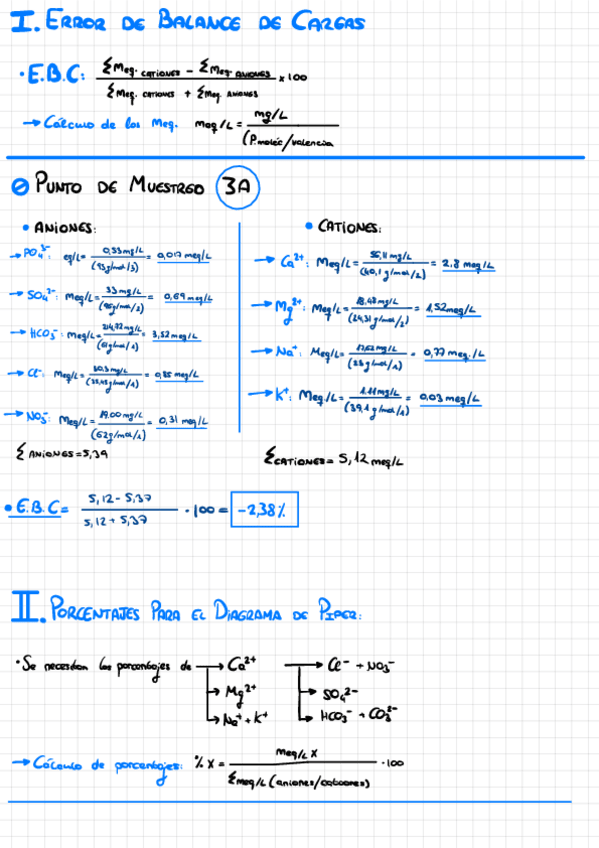 I. ERROR DE BALANCE DE CARGAS
· E.B.C: (Σ Meq. CATIONES - Σ Meq. ANIONES) / (Σ Meq. CATIONES + Σ Meq. ANIONES) x 100
→ Cálculo de los Meq. meq/L = mg/L / (P.molec/valencia
⊘ PUNTO DE MUESTREO 3A
• ANIONES:
→ PO₄³⁻: eq/L = 0,53 mg/L / (95g/mol/3) = 0,017 meq/L
→ SO₄²⁻: Meq/L = 33 mg/L / (96g/mol/2) = 0,69 meq/L
→ HCO₃⁻: Meq/L = 214,72 mg/L / (61g/mol/1) = 3,52 meq/L
→ Cl⁻: Meq/L = 30,3 mg/L / (35,45g/mol/1) = 0,85 meq/L
→ NO₃⁻: Meq/L = 19.00 mg/L / (62g/mol/1) = 0,31 meq/L
Σ ANIONES = 5,39
• CATIONES:
→ Ca²⁺: Meq/L = 56,11 mg/L / (40,1 g/mol/2) = 2.8 meq/L
→ Mg²⁺: Meq/L = 18,48 mg/L / (24,31 g/mol/2) = 1,52 meq/L
→ Na⁺: Meq/L = 17,62 mg/L / (23 g/mol/1) = 0,77 meq./L
→ K⁺: Meq/L = 1.11 mg/L / (39,1 g/mol/1) = 0,03 meq/L
Σ CATIONES = 5,12 meq/L
• E.B.C = (5,12 - 5,37) / (5,12 + 5,37) · 100 = -2,38%
II. PORCENTAJES PARA EL DIAGRAMA DE PIPER:
· Se necesitan los porcentajes de → Ca²⁺ → Cl⁻ + NO₃⁻
→ Mg²⁺ → SO₄²⁻
→ Na⁺ + K⁺ → HCO₃⁻ + CO₃²⁻
→ Cálculo de porcentajes: % X = meq/L X / Σ meq/L (aniones/cationes) · 100